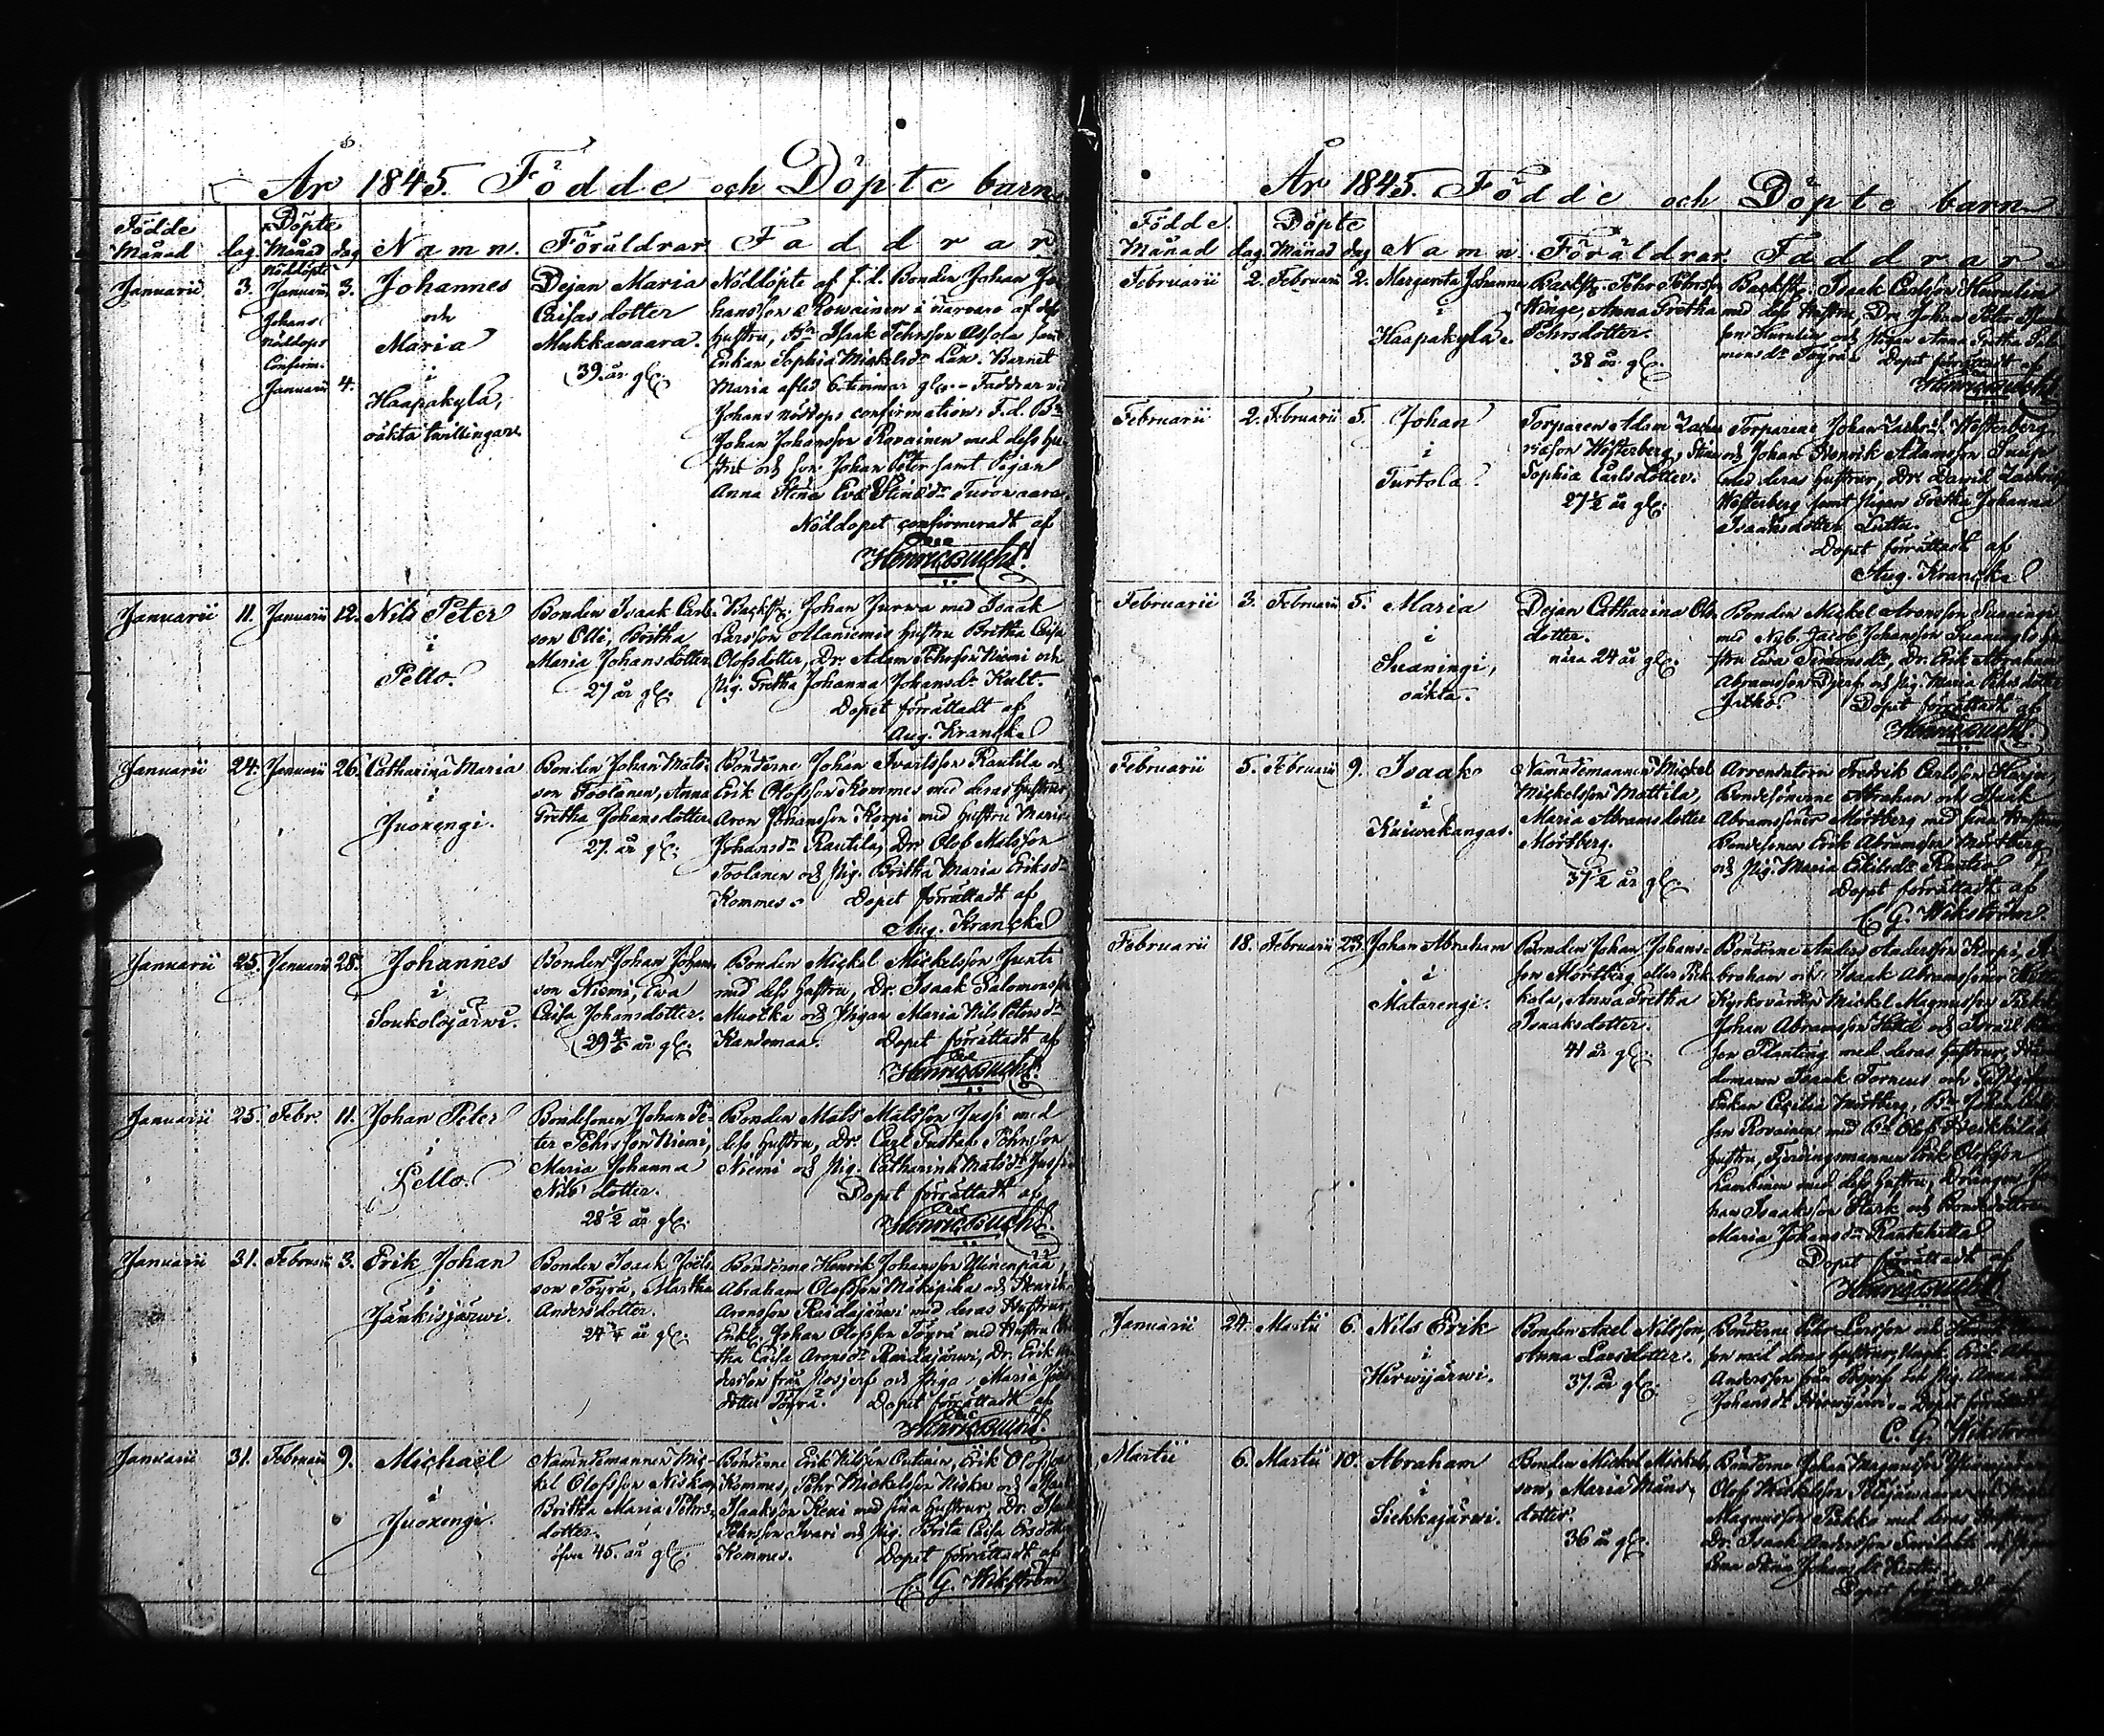 År 1845. Födde och Döpte barn
Födde Döpte
Månad dag. Månad dag Namn. Föräldrar Faddrar
Januarii 3. Nöddöpte Januarii 3.
Johans nöddops Confirm. Januarii 4.
Johannes
och
Maria
i
Haapakylä,
oäkta twillingar.
Dejan Maria
Caisas dotter
Mukkawaara.
39. år gl.
Nöddöpte af f.d. Bonden Johan Jo
hansson Rowainen i närvaro af dess
hustru, Bn Isaak Pehrsson Ossola samt
Enkan Sophia Mickelsdr Barnet
Maria afled 6. timmar gl. Faddrar vid
Johans nöddops confirmation: F.d. Bn
Johan Johansson Rovainen med dess hu-
stru och son Johan Peter samt Pigan
Anna Stina Eva
Nöddopet confirmeradt af
Henric Bucht.
Januarii 11. Januarii 12. Nils Peter
i
Pello.
Bonden Isaak Carls
son Olli, Britha
Maria Johansdotter
27 år gl.
Backst. Johan Jurwa med Isaak
Larsson Alaniemis hustru Britha Caisa
Olofsdotter, Dr. Adam Pehrsson Niemi och
Pig. Gretha Johanna Johansdr Kult.
Dopet förrättadt af
Aug. Krancka
Januarii 24. Januarii 26. Catharina Maria
i
Juoxengi.
Bonden Johan Mats-
son Toolanen, Anna
Gretha Johansdotter
27. år gl.
Bönderne Johan Ivarsson Rautila och
Erik Olofsson Kommes med deras hustrur,
Aron Johansson Korpi med hustru Maria
Johansdr Rautila, Dr Olof Matsson
Toolanen och Pig. Britha Maria Eriksdr
Kommes. Dopet förrättadt af
Aug. Krancka
Januarii 25. Januarii 28. Johannes
i
Soukolojärwi.
Bonden Johan Johans
son Niemi, Ewa
Caisa Johansdotter.
29 år gl.
Bonden Mickel Mickelsson Junti
med dess hustru, Dr. Isaak Salomonsson
Muotka och Pigan Maria Nils Petersdr
Kandomaa. Dopet förrättadt af
Henric Bucht.
Januarii 25. Febr. 11. Johan Peter
i
Pello.
Bondesonen Johan Pe-
ter Pehrsson Niemi,
Maria Johanna
Nils dotter.
28 1/2 år gl.
Bonden Mats Matsson Jussi med
dess hustru, Dr. Carl Gustaf Pehrsson
Niemi och Pig. Catharina Matsdr Jussi
Dopet förrättadt af
Henric Bucht.
Januarii 31. Februarii 3. Erik Johan
i
Jänkisjärwi.
Bonden Isaak Joels
son Töyrä, Martha
Andersdotter.
24 år gl.
Bönderne Henrik Johansson Ylinenpää,
Abraham Olofsson Mäkipika och Henrik
Aronsson Raidajärwi med deras Hustrur,
Enkl. Johan Olofsson Töyrä med Hustru
tha Caisa Aronsdr Raidajärwi, Dr. Erik
dersson från och Piga Maria
dotter Töyrä. Dopet förrättadt af
Henric Bucht.
Januarii 31. Februarii 9. Michaël
i
Juoxengi.
Nämndemannen Mic-
kel Olofsson Niska,
Britha Maria Pehrs-
dotter.
öfver 45. år gl.
Bönderne Erik Nilsson, Erik Olofsson
Kommes, Pehr Mickelsson Niska och
Isaaksson Keni med sina hustrur, Dr.
Pehrsson Ivari och Pig. Brita Caisa
Kommes. Dopet förrättadt af
C. G. Wikström
År 1845. Födde och Döpte barn
Födde Döpte
Månad dag. Månad dag Namn Föräldrar Faddrar
Februarii 2. Februarii 2. Margareta Johanna
i
Haapakylä.
Backst. Pehr Pehrsson
Winge, Anna Gretha
Pehrsdotter.
38 år gl.
Backst. Isaak Carlsson Kurulin
med dess Hustru, Dr. Johan Peter
son Kurulin och Pigan Anna Gretha
monsdr Töyrä Dopet förrättadt af
Henric Bucht
Februarii 2. Februarii 5. Johan
i
Turtola.
Torparen Adam Zacha
risson Wösterberg,
Sophia Carlsdotter.
27 1/2 år gl.
Torparene Johan Zachris. Wösterberg
och Johan Henrik Adamsson
med deras hustrur, Dr. David Zachris
Wösterberg samt Pigan Gretha Johanna
Isaaksdotter Lutta.
Dopet förrättadt af
Aug. Krancka
Februarii 3. Februarii 5. Maria
i
Suaningi,
oäkta.
Dejan Catharina Olofs
dotter.
nära 24 år gl.
Bonden Mickel Aronsson Suaningi
med Nyb. Jacob Johansson Suaningis hu-
stru Ewa Simonsdr, Dr. Erik Abraham
Abramsson och Pig. Maria Pehrsdotter
Jetkö. Dopet förrättadt af
Henric Bucht.
Februarii 5. Februarii 9. Isaak
i
Kuiwakangas.
Nämndemannen Mickel
Mickelsson Mottila,
Maria Abramsdotter
Mörtberg.
37 1/2 år gl.
Arrendatorn Fredrik Carlsson
Bondesönerne Abraham och Isaak
Abramssöner Mörtberg med sina Hustrur
Bondesonen Erik Abramsson Mörtberg
och Pig. Maria Rautio
Dopet förrättadt af
C. G. Wikström.
Februarii 18. Februarii 23. Johan Abraham
i
Matarengi.
Bonden Johan Johans-
son Mörtberg eller
kola, Anna Gretha
Isaaksdotter.
41 år gl.
Bönderne Anders Andersson Korpi, A-
braham och Isaak Abramssöner
Kyrkovärden Mickel Magnusson
Johan Abramsson och Israel
son Planting med deras hustrur,
domaren Isaak Torneus och
Enkan Cecilia Mörtberg, Bn
son Rovainen med Bn Olof Heikkiläs
hustru, Fjerdingsmannen Erik Olofsson
med dess hustru, Drängen Jo
han Isaaksson Stark och Bondedottren
Maria Johansdr Rantahilla
Dopet förrättadt af
Henric Bucht.
Januarii 24. Martii 6. Nils Erik
i
Hirwijärwi.
Bonden Axel Nilsson,
Anna Larsdotter.
37. år gl.
Bönderne Larsson och
son med deras hustrur,
Andersson från och Pig. Anna
Johansdr Hirwijärwi. Dopet förrättadt
C. G. Wikström
Martii 6. Martii 10. Abraham
i
Siekkajärwi.
Bonden Mickel Mickels
son, Maria Måns-
dotter.
36 år gl.
Bönderne Johan Magnusson
Olof Mickelsson
Magnusson med deras Hustrur
Dr. Isaak Andersson och
Stina Johansdr
Dopet förrättadt af